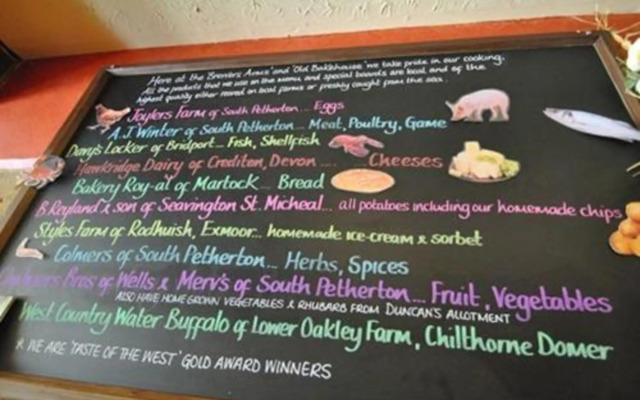 Here at the Brewers Arms' and 'Old Bakehouse' we take pride in our cooking.
All the products that we use on the menu and special boards are local and of the
highest quality either reared on local farms or freshly caught from the sea.
Taylers Farm of South Petherton... Eggs
A.J Winter of South Petherton... Meat, Poultry, Game
Davy's Locker of Bridport... Fish, Shellfish
Hawkridge Dairy of Crediton, Devon ..... Cheeses
Bakery Roy-al of Martock... Bread
B.Royland & son of Seavington St. Micheal... all potatoes including our homemade chips
Styles Farm of Rodhuish, Exmoor... homemade ice-cream & sorbet
Colmers of South Petherton... Herbs, Spices
Bros of Wells & Merv's of South Petherton.... Fruit, Vegetables
ALSO HAVE HOME GROWN VEGETABLES & RHUBARB FROM DUNCAN'S ALLOTMENT
West Country Water Buffalo of Lower Oakley Farm, Chilthorne Domer
* WE ARE 'TASTE OF THE WEST' GOLD AWARD WINNERS